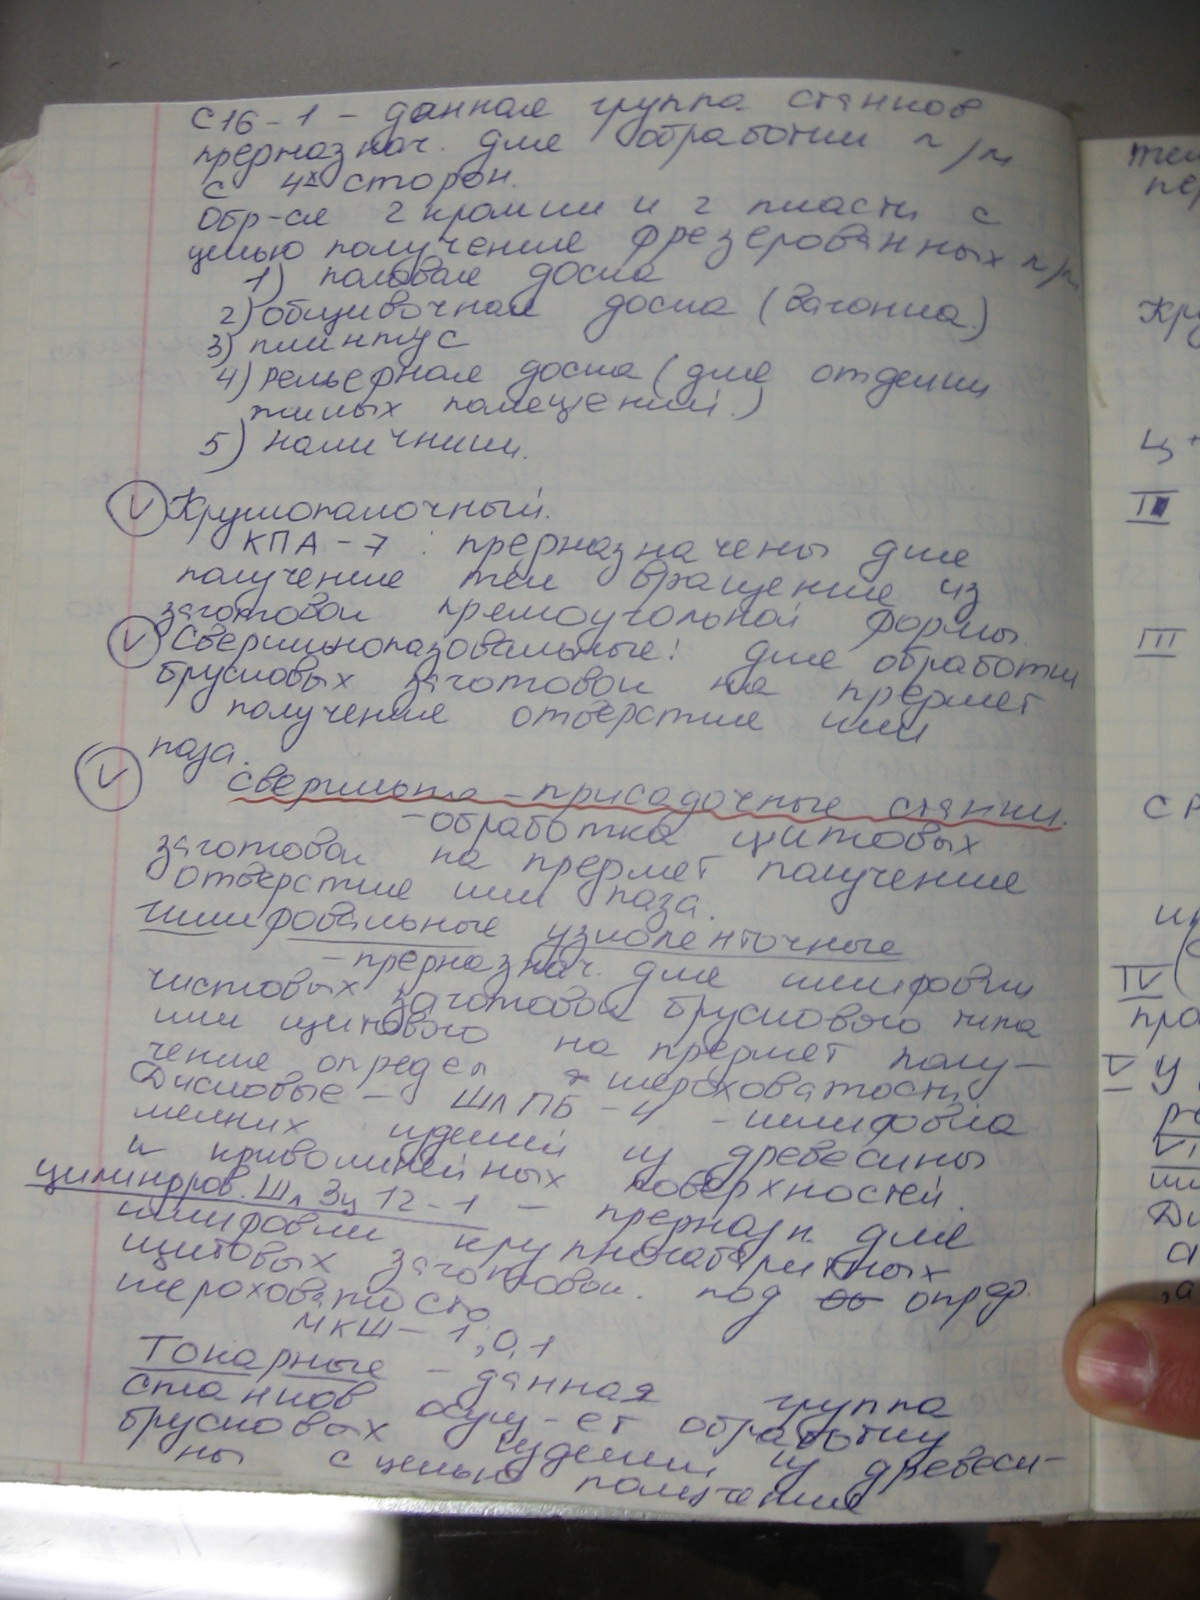 С16-1 - данная группа станков
предназнач. для обработки п/м
с 4х сторон.
Обр-ся 2 кромки и 2 пласти с
целью получения фрезерованных п/м
1) половая доска
2) обшивочная доска (вагонка)
3) плинтус
4) рельефная доска (для отделки
жилых помещений.)
5) наличники.
V Круглопалочный.
КПА-7: предназначены для
получение тел вращения из
заготовок прямоугольной формы.
V Сверлильнопазовальные: для обработки
брусковых заготовок на предмет
получения отверстия или
паза.
V Сверлильно-присадочные станки.
- обработка щитовых
заготовок на предмет получения
отверстия или паза.
Шлифовальные узколенточные
- предназнач. для шлифовки
чистовых заготовок брускового типа
или щитового на предмет полу-
чение определ. шероховатости
Дисковые - ШлПБ-4 - шлифовка
мелких изделий из древесины
и криволинейных поверхностей.
цилиндров. Шл 3ц 12-1 - предназн для
шлифовки крупногабаритных
щитовых заготовок. под опред.
шероховатость
МКШ-1,0,1
Токарные - данная группа
станков осущ-ет обработку
брусковых изделий из древеси-
ны с целью получения
те
пе
Кру
Ц
III
III
с р
ш
IV
про
V у
VI
ши
Ди
а